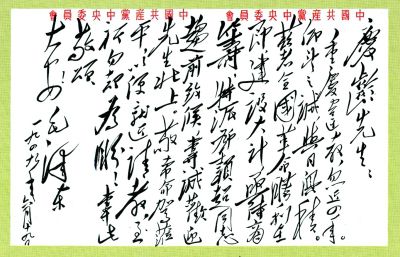 中國共産黨中央委員會
中國共産黨中央委員會
慶齡先生：
重慶違教，忽近四年。
仰望之誠，與日俱積。
茲者全國革命勝利在
即，建設大計，亟待商
籌，特派鄧穎超同志
趨前致候，專誠歡迎
先生北上。敬希命駕蒞
平，以便就近請教，至
祈勿卻為盼！專此
敬頌
大安！毛澤東
一九四九年六月十九日